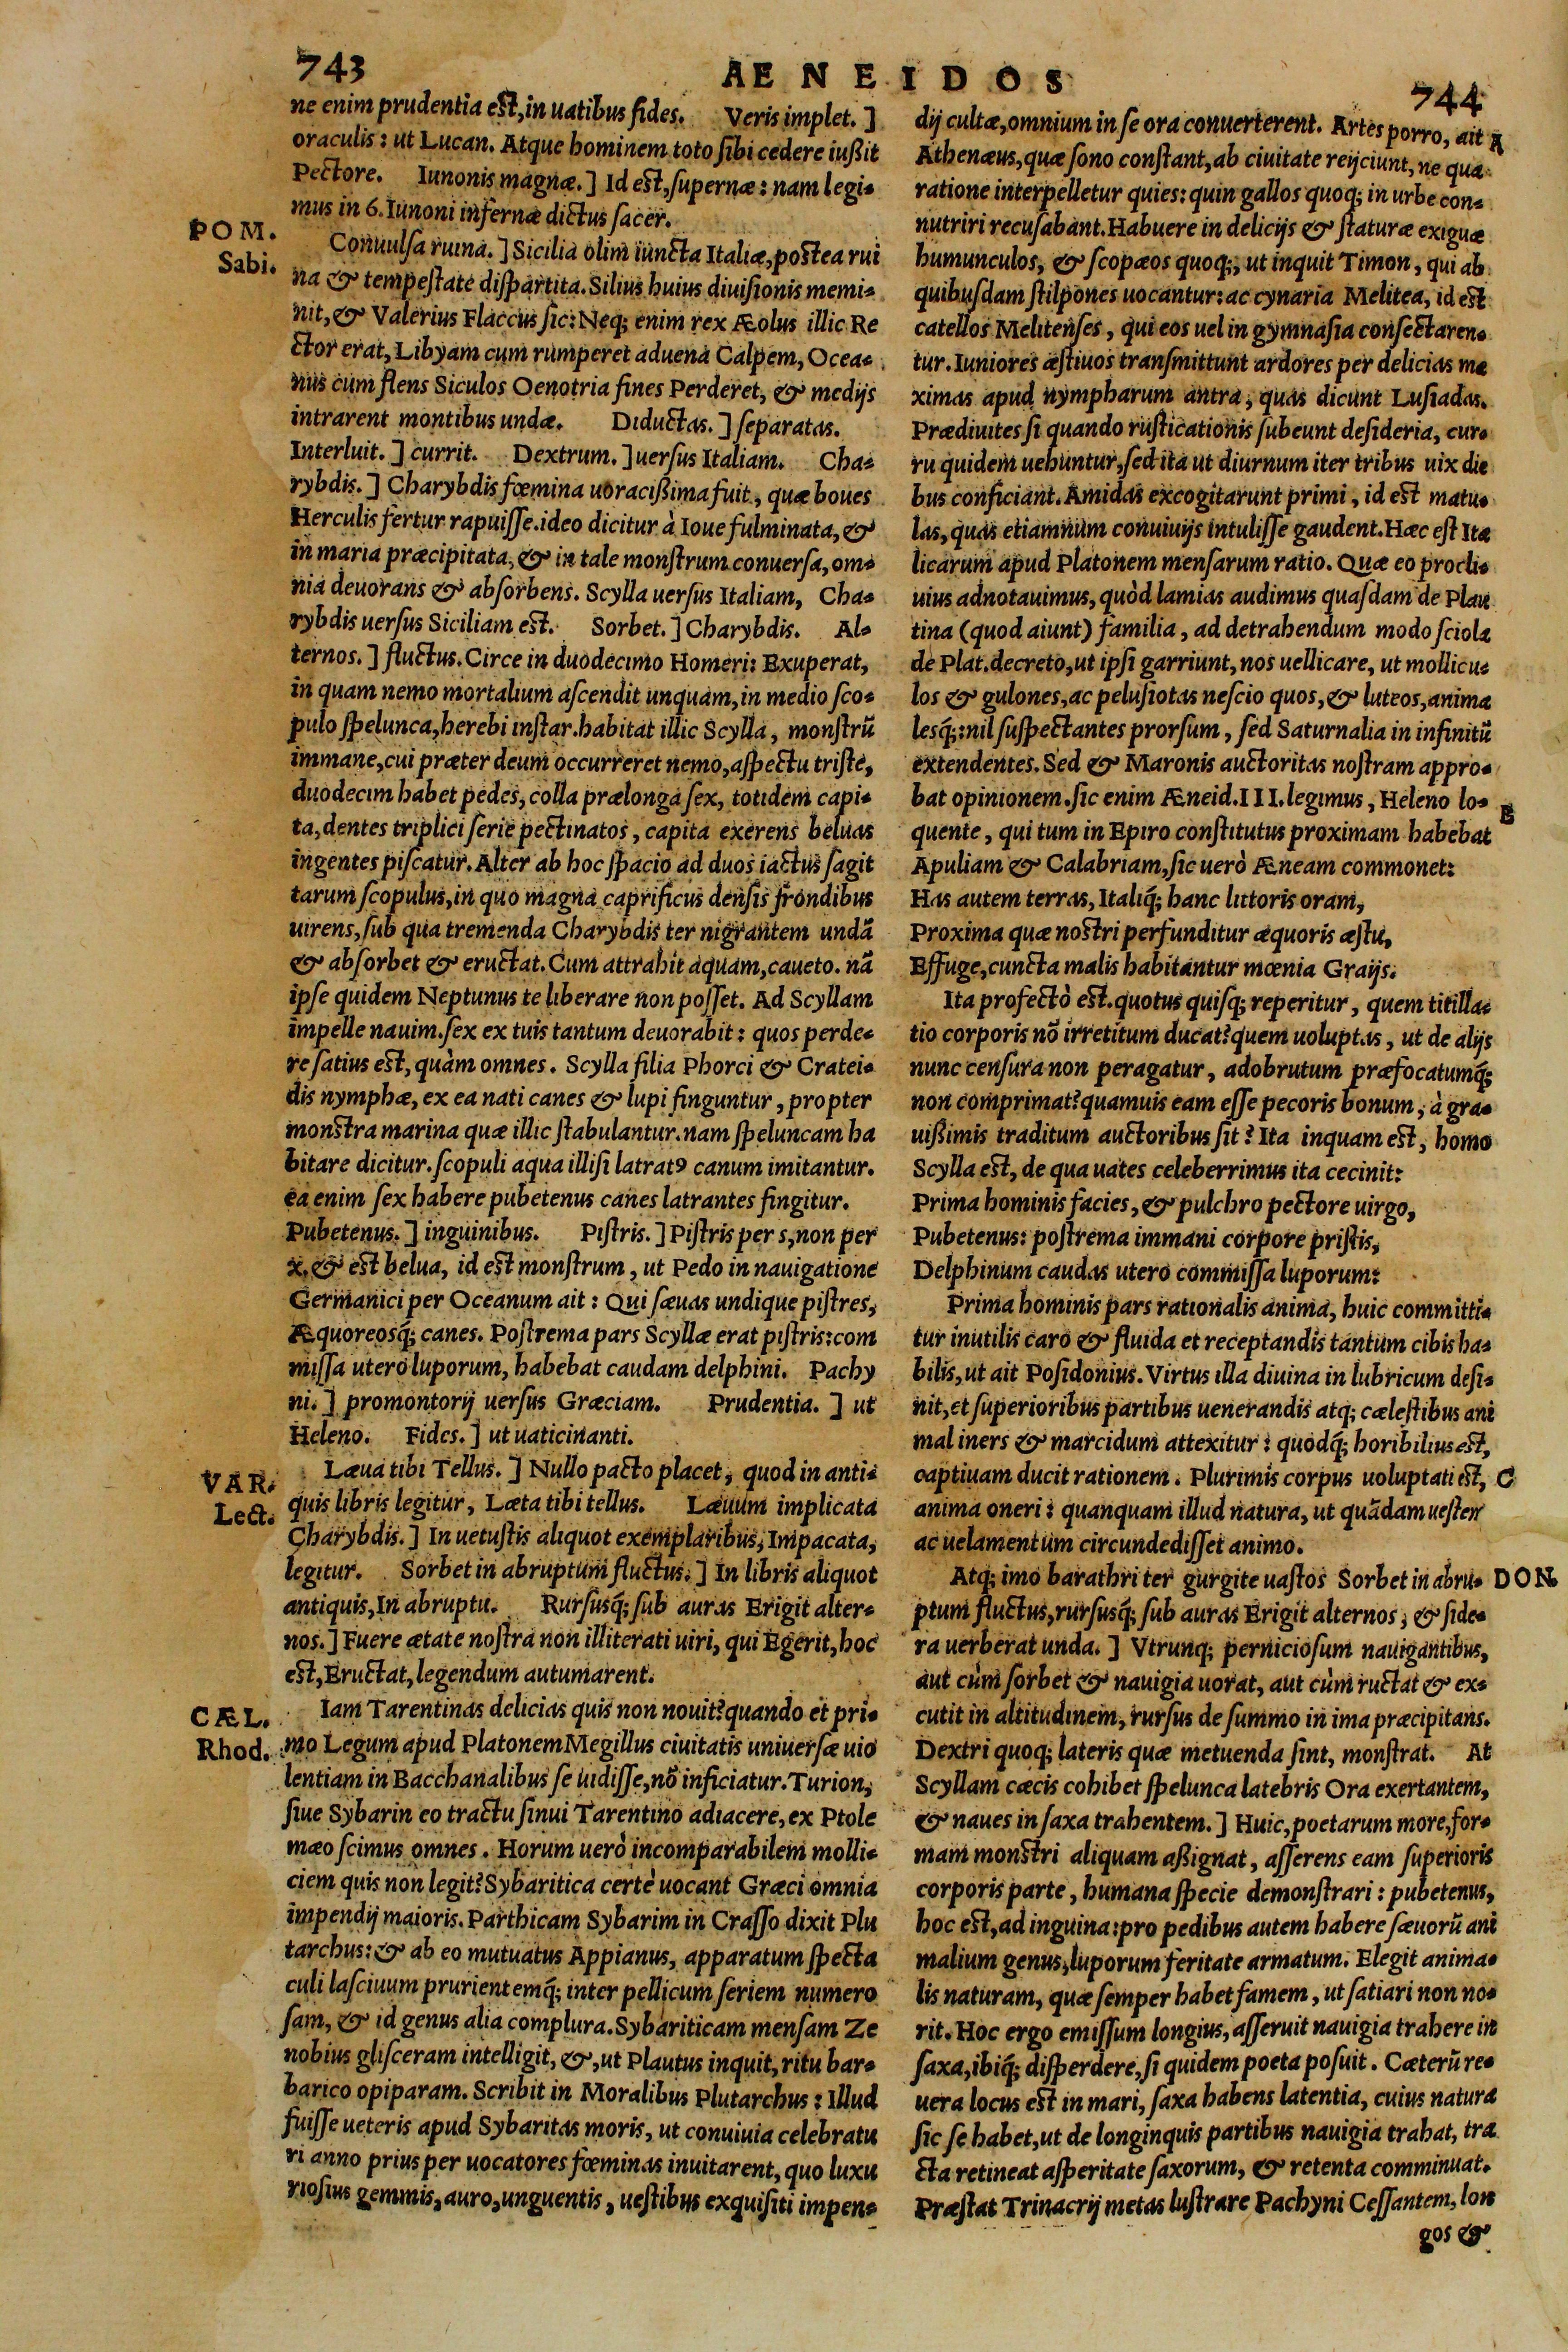 743
AENEIDOS
744
ne enim prudentia est, in uatibus fides. Veris implet. ]
oraculis: ut Lucan. Atque hominem toto sibi cedere iußit
Pectore. Iunonis magnæ. ] Id est, supernæ: nam legi-
mus in 6. Iunoni infernæ dictus sacer.
POM.
Sabi.
Conuulsa ruina. ] Sicilia olim iuncta Italiæ, postea rui
na & tempestate dispartita. Silius huius diuisionis memi-
nit, & Valerius Flaccus sic: Neq; enim rex Æolus illic Re
ctor erat, Libyam cum rumperet aduena Calpem, Ocea-
nus cum flens Siculos Oenotria fines Perderet, & medijs
intrarent montibus undæ. Diductas. ] separatas.
Interluit. ] currit. Dextrum. ] uersus Italiam. Cha-
rybdis. ] Charybdis fœmina uoracißima fuit, quæ boues
Herculis fertur rapuisse. ideo dicitur à Ioue fulminata, &
in maria præcipitata, & in tale monstrum conuersa, om-
nia deuorans & absorbens. Scylla uersus Italiam, Cha-
rybdis uersus Siciliam est. Sorbet. ] Charybdis. Al-
ternos. ] fluctus. Circe in duodecimo Homeri: Exuperat,
in quam nemo mortalium ascendit unquam, in medio sco-
pulo spelunca, herebi instar. habitat illic Scylla, monstrũ
immane, cui præter deum occurreret nemo, aspectu triste,
duodecim habet pedes, colla prælonga sex, totidem capi-
ta, dentes triplici serie pectinatos, capita exerens beluas
ingentes piscatur. Alter ab hoc spacio ad duos iactus sagit
tarum scopulus, in quo magna caprificus densis frondibus
uirens, sub qua tremenda Charybdis ter nigrantem undã
& absorbet & eructat. Cum attrahit aquam, caueto. nã
ipse quidem Neptunus te liberare non posset. Ad Scyllam
impelle nauim. sex ex tuis tantum deuorabit: quos perde-
re satius est, quàm omnes. Scylla filia Phorci & Cratei-
dis nymphæ, ex ea nati canes & lupi finguntur, propter
monstra marina quæ illic stabulantur. nam speluncam ha
bitare dicitur. scopuli aqua illisi latratꝰ canum imitantur.
ea enim sex habere pubetenus canes latrantes fingitur.
Pubetenus. ] inguinibus. Pistris. ] Pistris per s, non per
x. & est belua, id est monstrum, ut Pedo in nauigatione
Germanici per Oceanum ait: Qui sæuas undique pistres,
Æquoreosq́; canes. Postrema pars Scyllæ erat pistris: com
missa utero luporum, habebat caudam delphini. Pachy
ni. ] promontorij uersus Græciam. Prudentia. ] ut
Heleno. Fides. ] ut uaticinanti.
VAR.
Lect.
Læua tibi Tellus. ] Nullo pacto placet, quod in anti-
quis libris legitur, Læta tibi tellus. Læuum implicata
Charybdis. ] In uetustis aliquot exemplaribus, Impacata,
legitur. Sorbet in abruptum fluctus. ] In libris aliquot
antiquis, In abruptu. Rursusq́; sub auras Erigit alter-
nos. ] Fuere ætate nostra non illiterati uiri, qui Egerit, hoc
est, Eructat, legendum autumarent.
CÆL.
Rhod.
Iam Tarentinas delicias quis non nouit? quando et pri-
mo Legum apud Platonem Megillus ciuitatis uniuersæ uio
lentiam in Bacchanalibus se uidisse, nõ inficiatur. Turion,
siue Sybarin eo tractu sinui Tarentino adiacere, ex Ptole
mæo scimus omnes. Horum uerò incomparabilem molli-
ciem quis non legit? Sybaritica certè uocant Græci omnia
impendij maioris. Parthicam Sybarim in Crasso dixit Plu
tarchus: & ab eo mutuatus Appianus, apparatum specta
culi lasciuum prurientemq́; inter pellicum seriem numero
sam, & id genus alia complura. Sybariticam mensam Ze
nobius glisceram intelligit, &, ut Plautus inquit, ritu bar-
barico opiparam. Scribit in Moralibus Plutarchus: Illud
fuisse ueteris apud Sybaritas moris, ut conuiuia celebratu
ri anno prius per uocatores fœminas inuitarent, quo luxu
riosius gemmis, auro, unguentis, uestibus exquisiti impen-
dij cultæ, omnium in se ora conuerterent. Artes porro, ait
A
Athenæus, quæ sono constant, ab ciuitate reijciunt, ne qua
ratione interpelletur quies: quin gallos quoq; in urbe con-
nutriri recusabant. Habuere in delicijs & staturæ exiguæ
humunculos, & scopæos quoq;, ut inquit Timon, qui ab
quibusdam stilpones uocantur: ac cynaria Melitea, id est
catellos Melitenses, qui eos uel in gymnasia consectaren-
tur. Iuniores æstiuos transmittunt ardores per delicias ma
ximas apud nympharum antra, quas dicunt Lusiadas.
Prædiuites si quando rusticationis subeunt desideria, cur-
ru quidem uehuntur, sed ita ut diurnum iter tribus uix die
bus conficiant. Amidas excogitarunt primi, id est matu-
las, quas etiamnum conuiuijs intulisse gaudent. Hæc est Ita
licarum apud Platonem mensarum ratio. Quæ eo procli-
uius adnotauimus, quòd lamias audimus quasdam de Plau
tina (quod aiunt) familia, ad detrahendum modo sciola
de Plat. decreto, ut ipsi garriunt, nos uellicare, ut mollicu-
los & gulones, ac pelusiotas nescio quos, & luteos, anima
lesq́;: nil suspectantes prorsum, sed Saturnalia in infinitũ
extendentes. Sed & Maronis auctoritas nostram appro-
bat opinionem. sic enim Æneid. III. legimus, Heleno lo-
B
quente, qui tum in Epiro constitutus proximam habebat
Apuliam & Calabriam, sic uerò Æneam commonet:
Has autem terras, Italiq́; hanc littoris oram,
Proxima quæ nostri perfunditur æquoris æstu,
Effuge, cuncta malis habitantur mœnia Graijs.
Ita profectò est. quotus quisq; reperitur, quem titilla-
tio corporis nõ irretitum ducat? quem uoluptas, ut de alijs
nunc censura non peragatur, adobrutum præfocatumq́;
non comprimat? quamuis eam esse pecoris bonum, à gra-
uißimis traditum auctoribus sit? Ita inquam est, homo
Scylla est, de qua uates celeberrimus ita cecinit:
Prima hominis facies, & pulchro pectore uirgo,
Pubetenus: postrema immani corpore pristis,
Delphinum caudas utero commissa luporum:
Prima hominis pars rationalis anima, huic committi-
tur inutilis caro & fluida et receptandis tantum cibis ha-
bilis, ut ait Posidonius. Virtus illa diuina in lubricum desi-
nit, et superioribus partibus uenerandis atq; cælestibus ani
mal iners & marcidum attexitur: quodq́; horibilius est,
captiuam ducit rationem. Plurimis corpus uoluptati est,
C
anima oneri: quanquam illud natura, ut quãdam uestem
ac uelamentum circundedisset animo.
Atq; imo barathri ter gurgite uastos Sorbet in abru-
DON.
ptum fluctus, rursusq́; sub auras Erigit alternos, & side-
ra uerberat unda. ] Vtrunq; perniciosum nauigantibus,
aut cùm sorbet & nauigia uorat, aut cùm ructat & ex-
cutit in altitudinem, rursus de summo in ima præcipitans.
Dextri quoq; lateris quæ metuenda sint, monstrat. At
Scyllam cæcis cohibet spelunca latebris Ora exertantem,
& naues in saxa trahentem. ] Huic, poetarum more, for-
mam monstri aliquam aßignat, asserens eam superioris
corporis parte, humana specie demonstrari: pubetenus,
hoc est, ad inguina: pro pedibus autem habere sæuorũ ani
malium genus, luporum feritate armatum. Elegit anima-
lis naturam, quæ semper habet famem, ut satiari non no-
rit. Hoc ergo emissum longius, asseruit nauigia trahere in
saxa, ibiq́; disperdere, si quidem poeta posuit. Cæterũ re-
uera locus est in mari, saxa habens latentia, cuius natura
sic se habet, ut de longinquis partibus nauigia trahat, tra
cta retineat asperitate saxorum, & retenta comminuat.
Præstat Trinacrij metas lustrare Pachyni Cessantem, lon
gos &